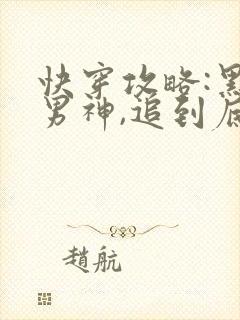 快穿攻略:黑
男神,追到底
趙航